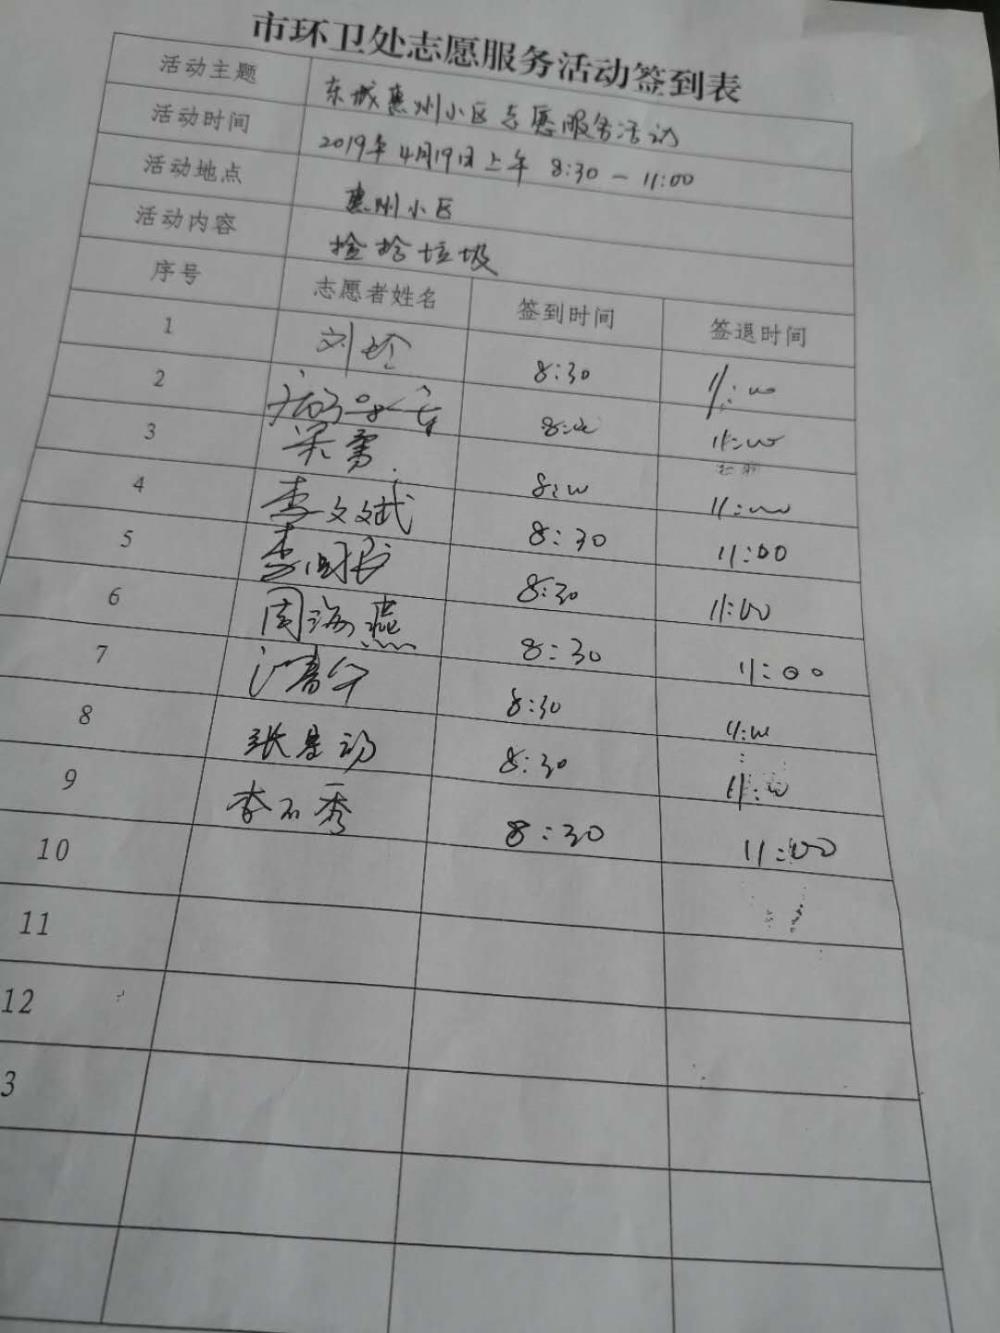 市环卫处志愿服务活动签到表
活动主题 东城惠州小区志愿服务活动
活动时间 2019年4月19日上午 8:30-11:00
活动地点 惠州小区
活动内容 捡拾垃圾
序号 志愿者姓名 签到时间 签退时间
1 刘 8:30 11:00
2 11:00
3 11:00
4 李文斌 8:30 11:00
5 李 8:30 11:00
6 周海燕 8:30 11:00
7 8:30 11:00
8 张 8:30 11:00
9 李 秀 8:30 11:00
10
11
12
3